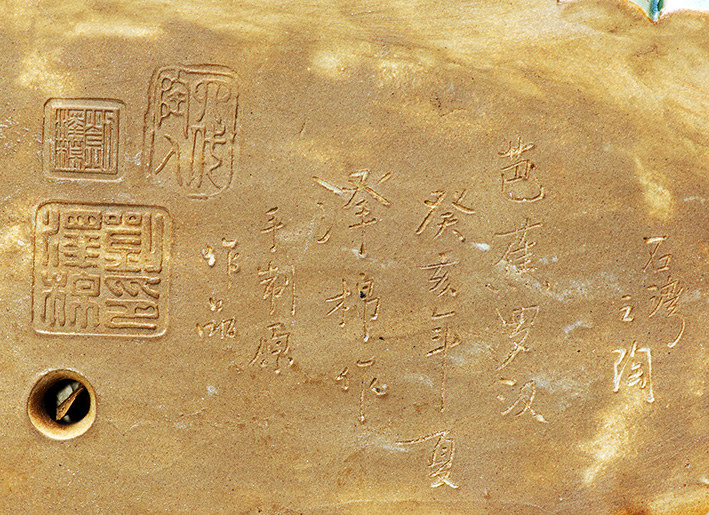 石湾之陶
芭蕉罗汉
癸亥年夏
泽棉作
手制原
作品
六代陶人
刘泽棉
刘泽棉印